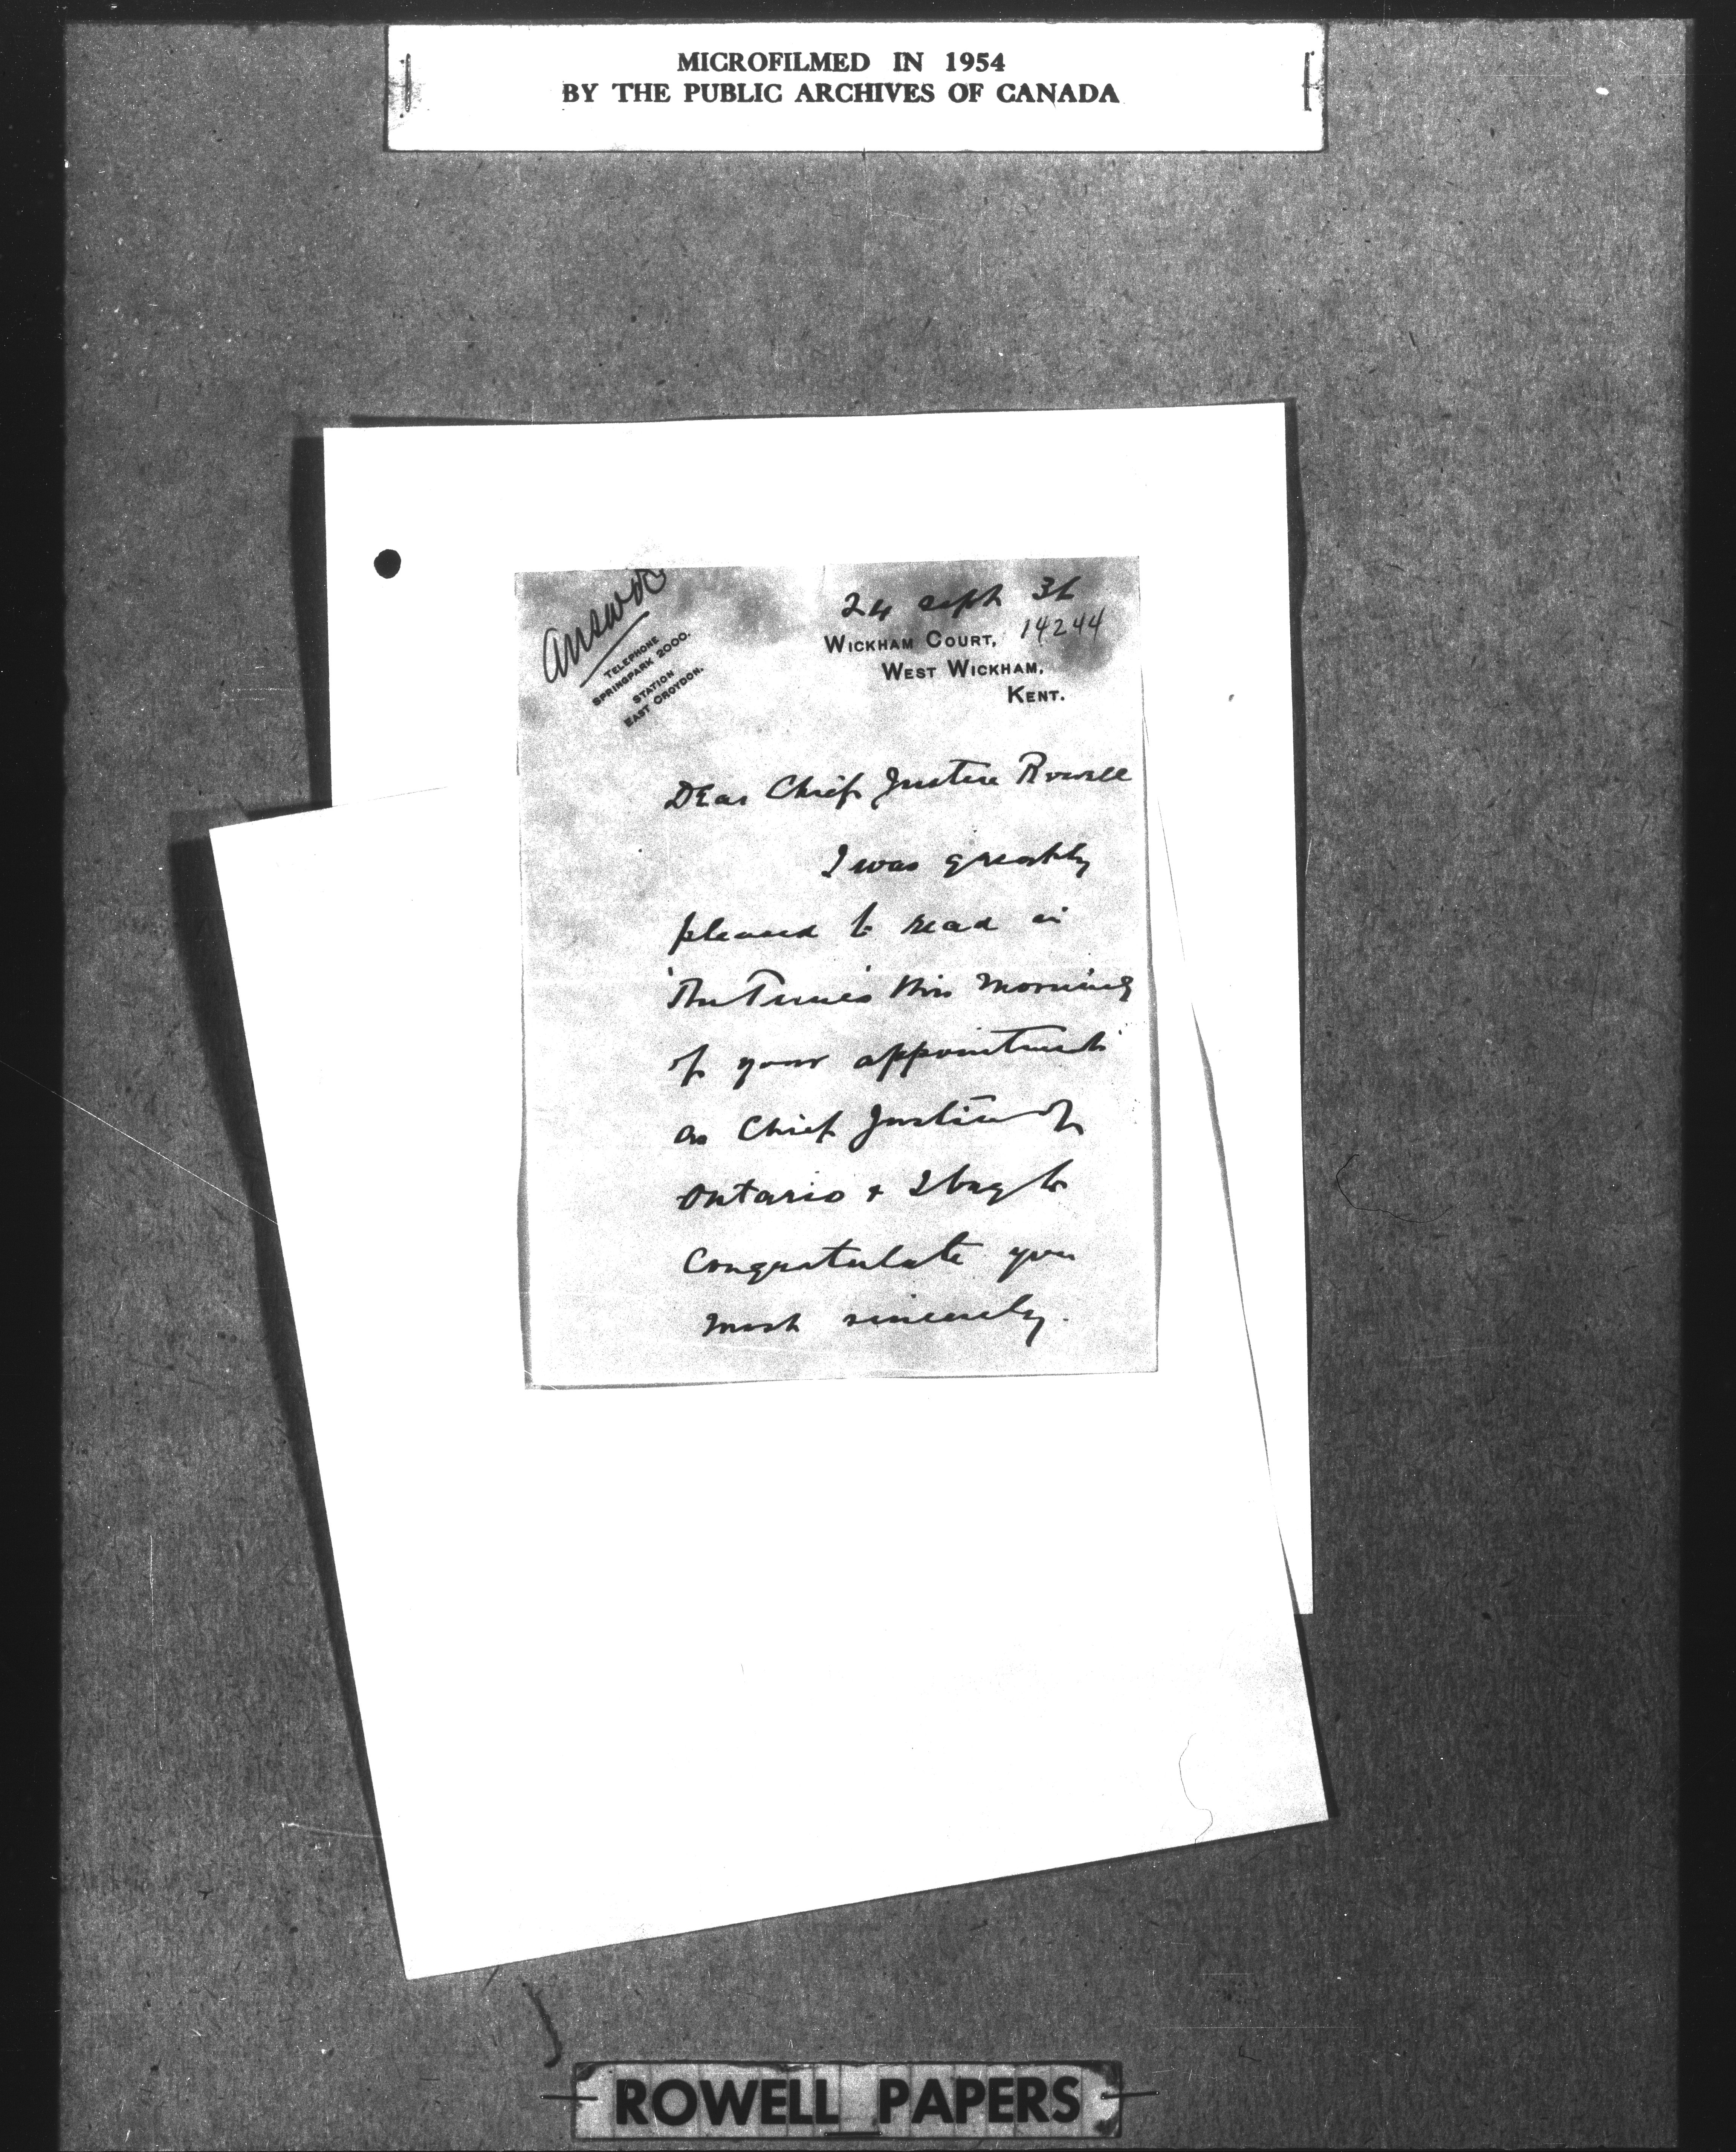 MICROFILMED IN 1954
BY THE PUBLIC ARCHIVES OF CANADA
Answd
TELEPHONE
SPRINGPARK 2000.
STATION
EAST CROYDON.
24 Sept 36
14244
WICKHAM COURT,
WEST WICKHAM,
KENT.
Dear Chief Justice Rowell
I was greatly
pleased to read in
'The Times' this morning
of your appointment
as Chief Justice of
Ontario & I beg to
congratulate you
most sincerely.
ROWELL PAPERS